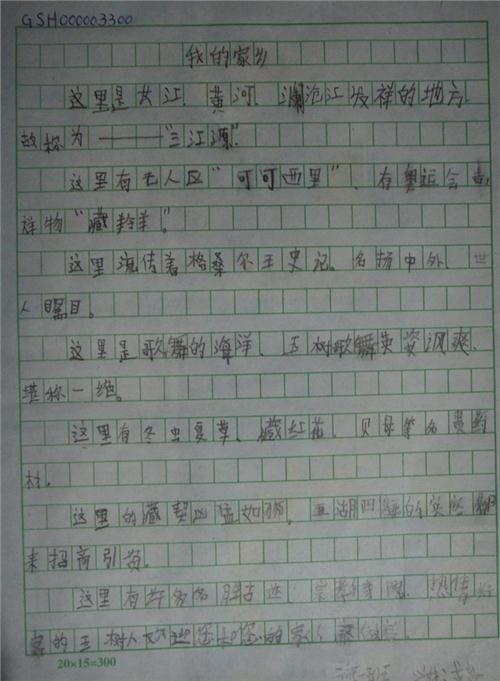 GSH000003300
我的家乡
这里是长江、黄河、澜沧江发祥的地方,
故称为———"三江源".
这里有无人区"可可西里"、有奥运会吉
祥物"藏羚羊"。
这里流传着格桑尔王史记。名扬中外、世
人瞩目。
这里是歌舞的海洋、玉树歌舞英姿飒爽、
堪称一绝。
这里有冬虫夏草、藏红花、贝母等名贵药
材。
这里的藏獒凶猛如狮。五湖四海的
来招商引资。
这里有许多名胜古迹。热情好
客的玉树人欢迎您和您的家人
20×15=300